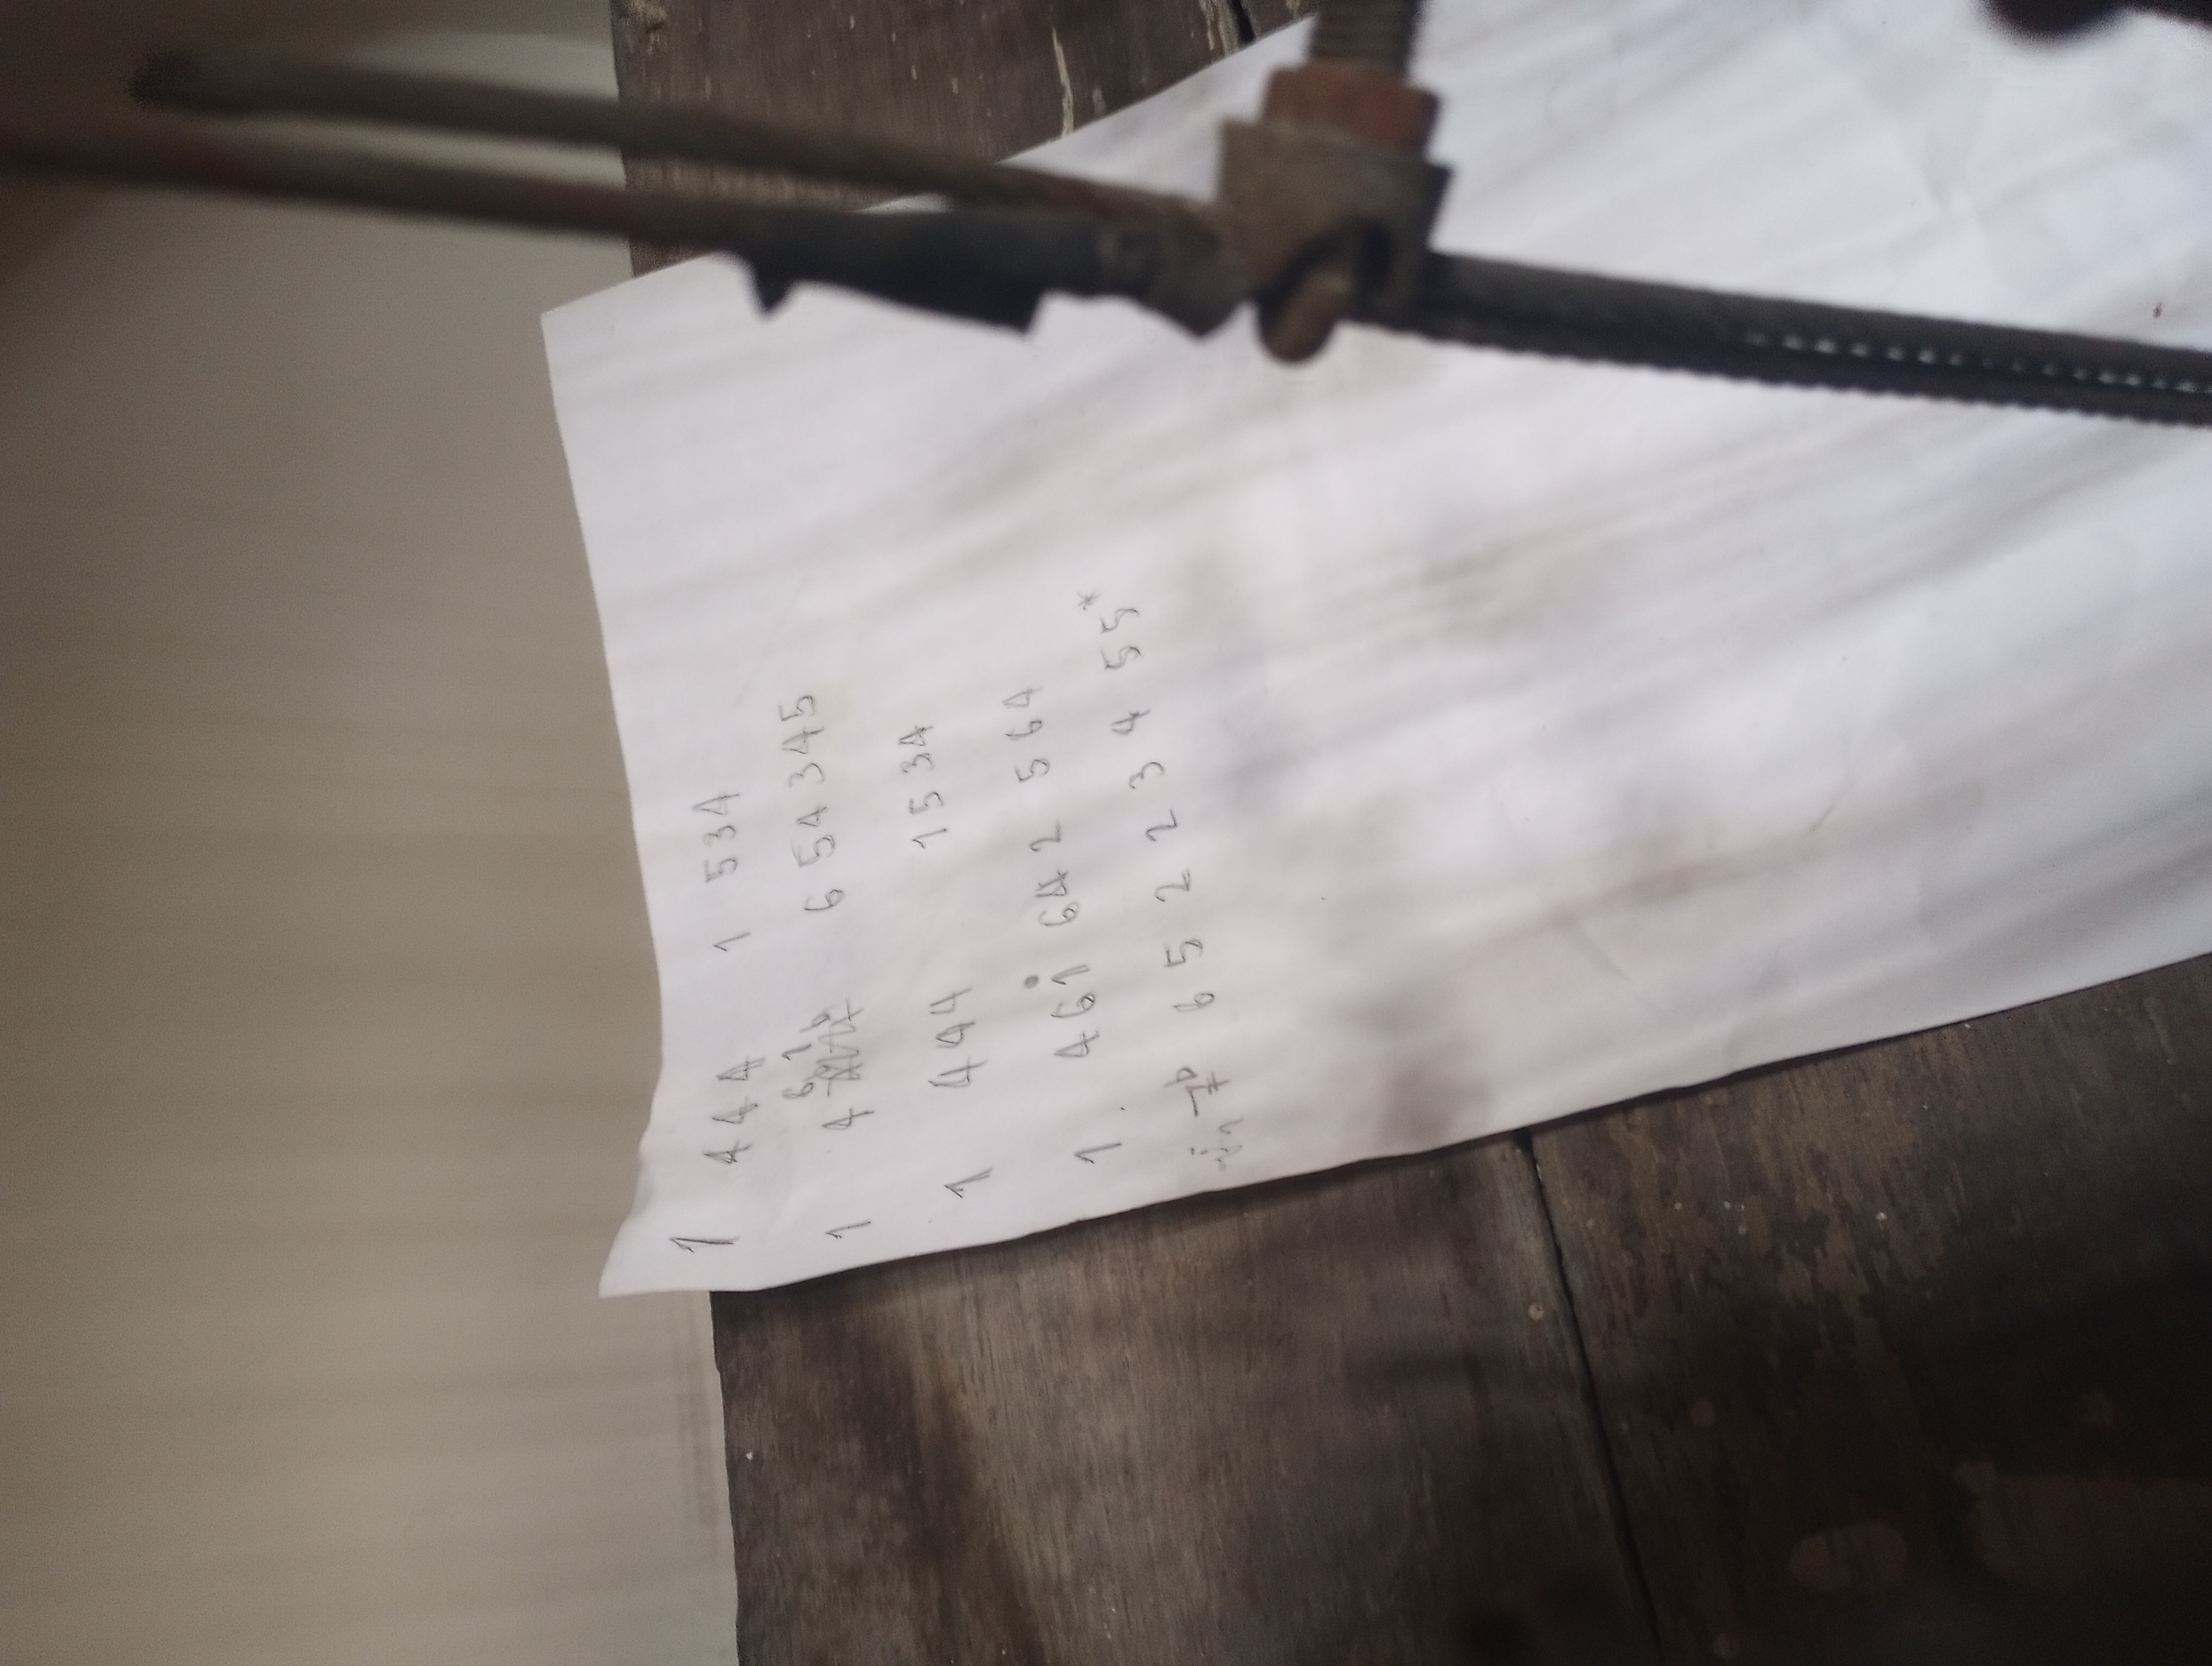 1 444 1 534
1 4 6 1 6 54345
1 444 1534
1. 461̇ 642 564
7ᵇ 6 5 2 2 3 4 55*